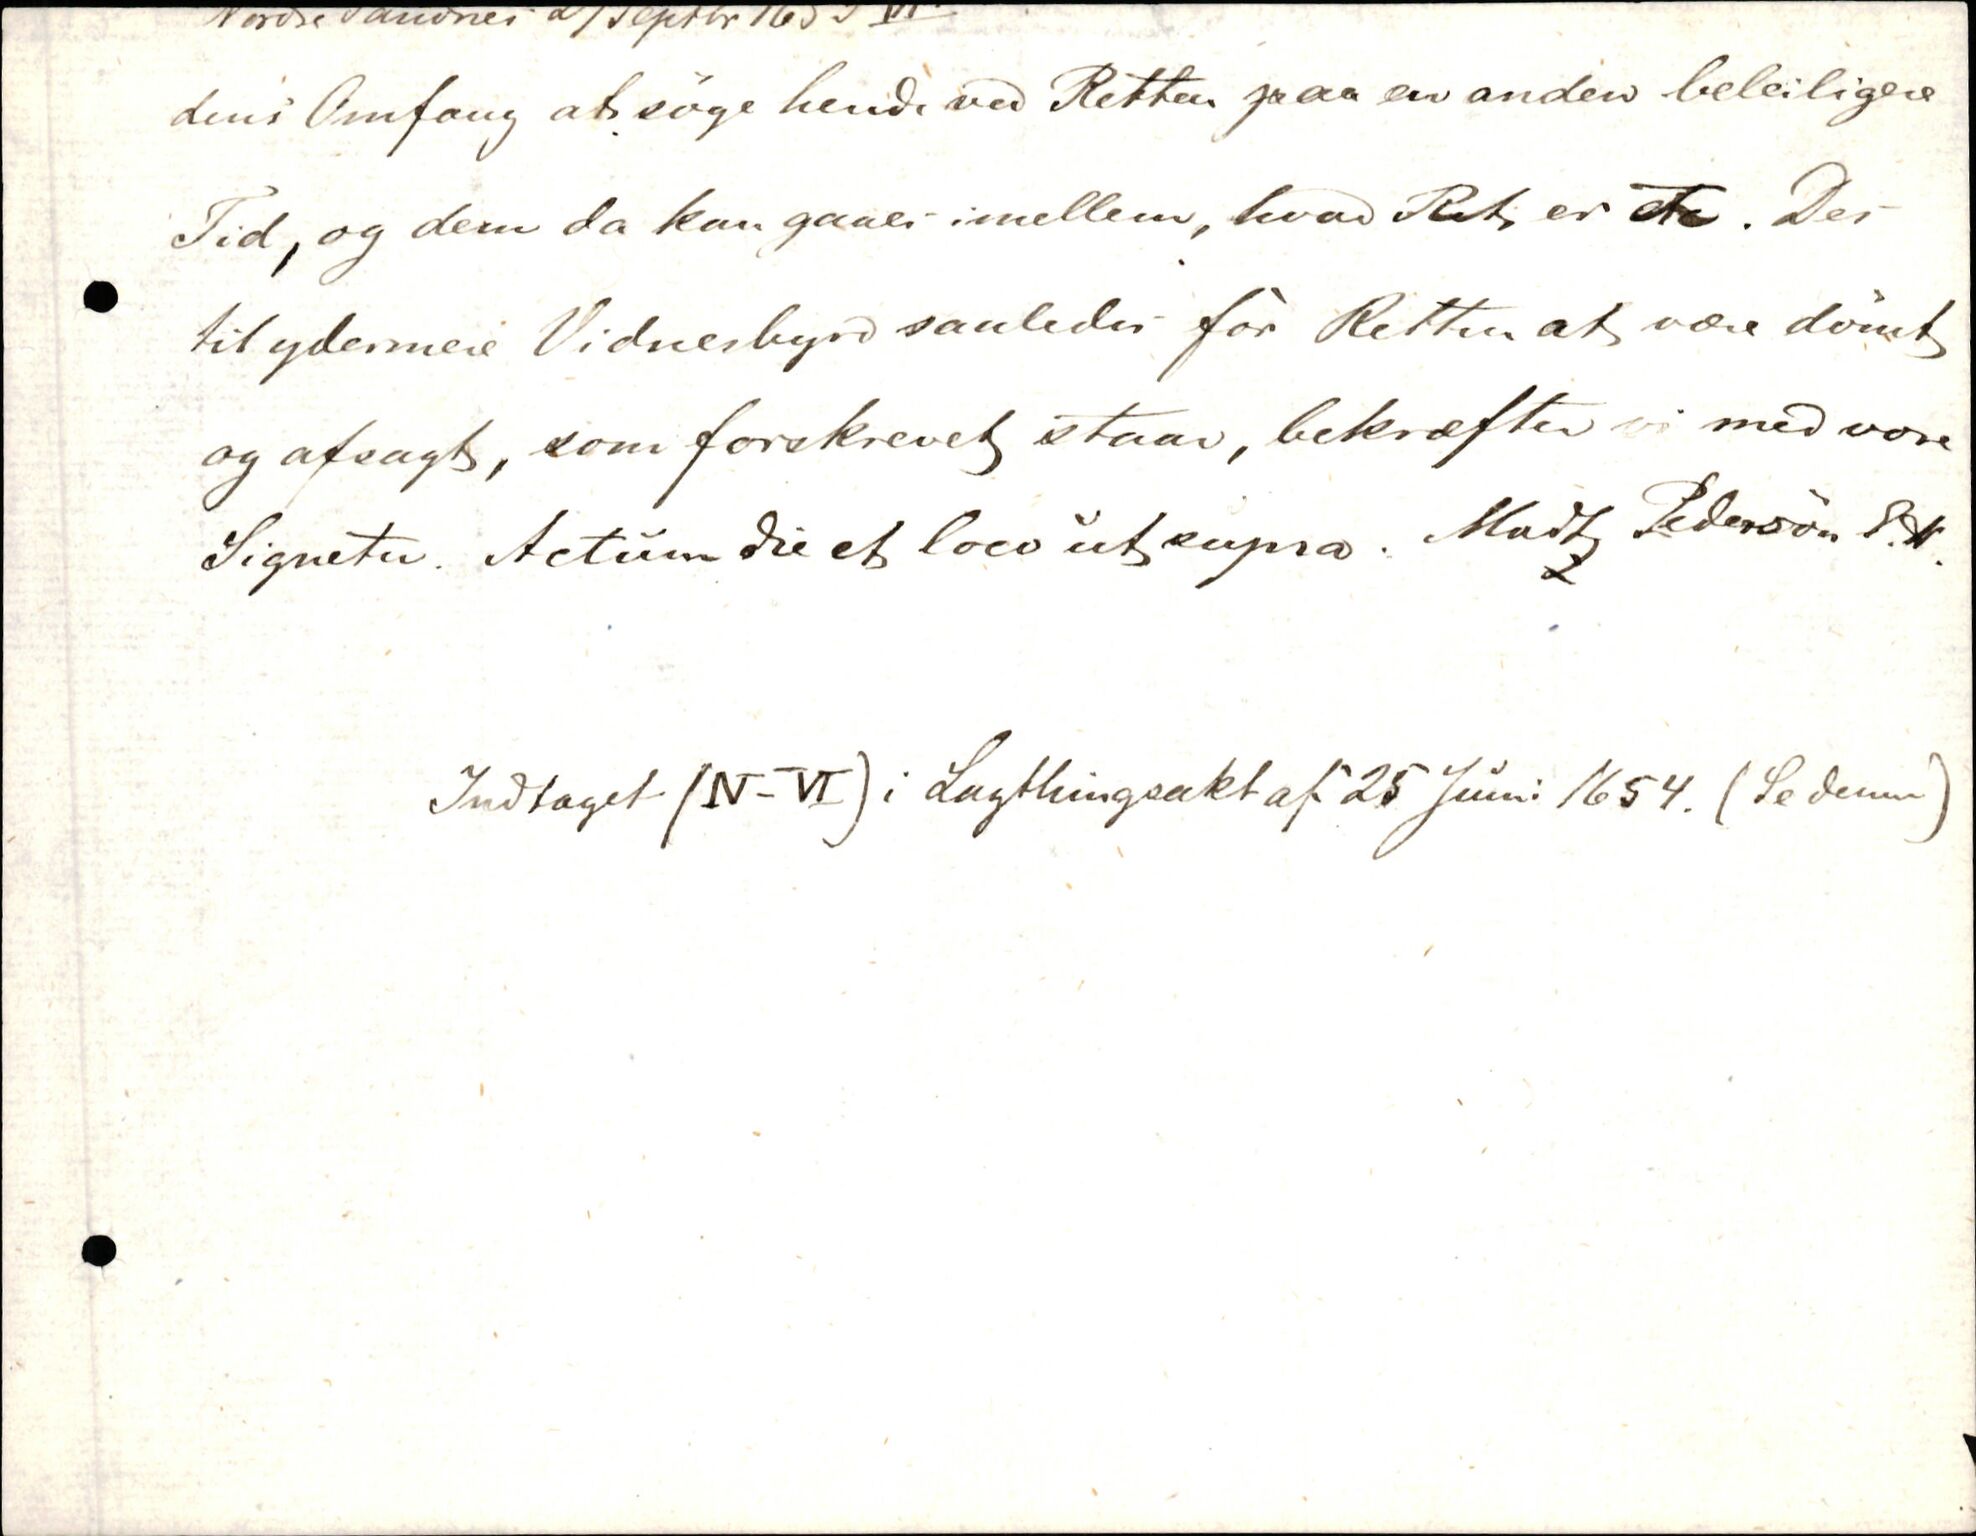 Nordre Sandnes 27 Septbr 1653 VI.
dens Omfang at søge hende ved Retten paa en anden beleiligere
Tid, og dem da kan gaaes imellem, hvad Ret er etc. Des
til ydermere Vidnesbyrd saaledes för Retten at være dömt
og afsagt, som forskrevet staar, bekræfter vi med vore
Signeter. Actum die et loco ut supra. Madtz Pedersön
Indtaget (IV-VI) i Lagthingsakt af 25 Juni 1654. (Se denne)